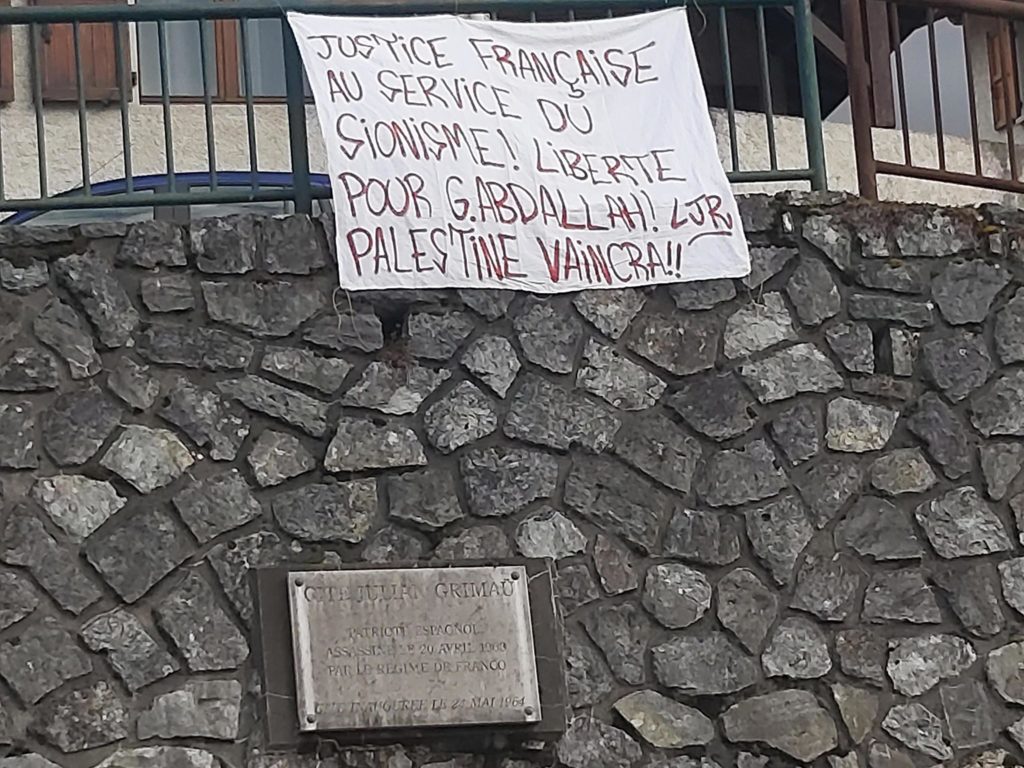 JUSTICE FRANÇAISE
AU SERVICE DU
SIONISME! LIBERTE
POUR G.ABDALLAH! LJR
PALESTINE VAINCRA!!
CITE JULIAN GRIMAÛ
PATRIOTE ESPAGNOL
ASSASSINE LE 20 AVRIL 1963
PAR LE REGIME DE FRANCO
CITE INAUGUREE LE 24 MAI 1964